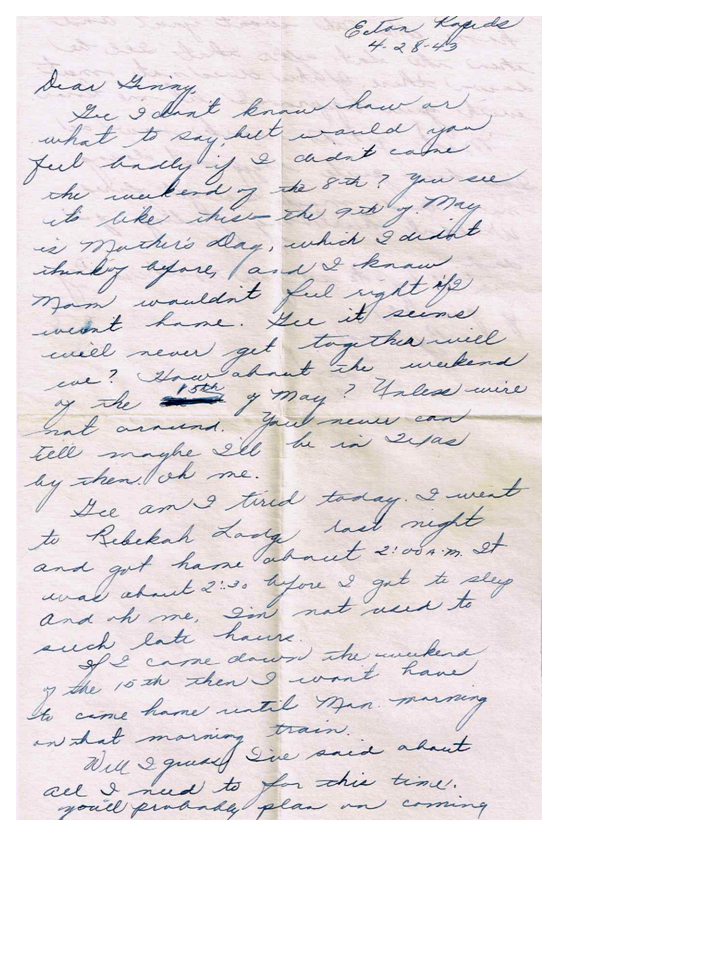 Eaton Rapids
4-28-43
Dear Ginny,
Gee I don't know how or
what to say, but would you
feel badly if I didn't come
the weekend of the 8th? You see
its like this - the 9th of May
is Mother's Day, which I didn't
think of before, and I know
Mom wouldn't feel right if I
wasn't home. Gee it seems
will never get together will
we? How about the weekend
of the 15th of May? Unless we're
not around. You never can
tell maybe I'll be in Texas
by then. oh me.
Gee am I tired today. I went
to Rebekah Lodge last night
and got home about 2:00 A.M. It
was about 2:30 before I got to sleep
and oh me, I'm not used to
such late hours.
If I come down the weekend
of the 15th then I won't have
to come home until Mon. morning
on that morning train.
Well I guess I've said about
all I need to for this time.
you'll probably plan on coming